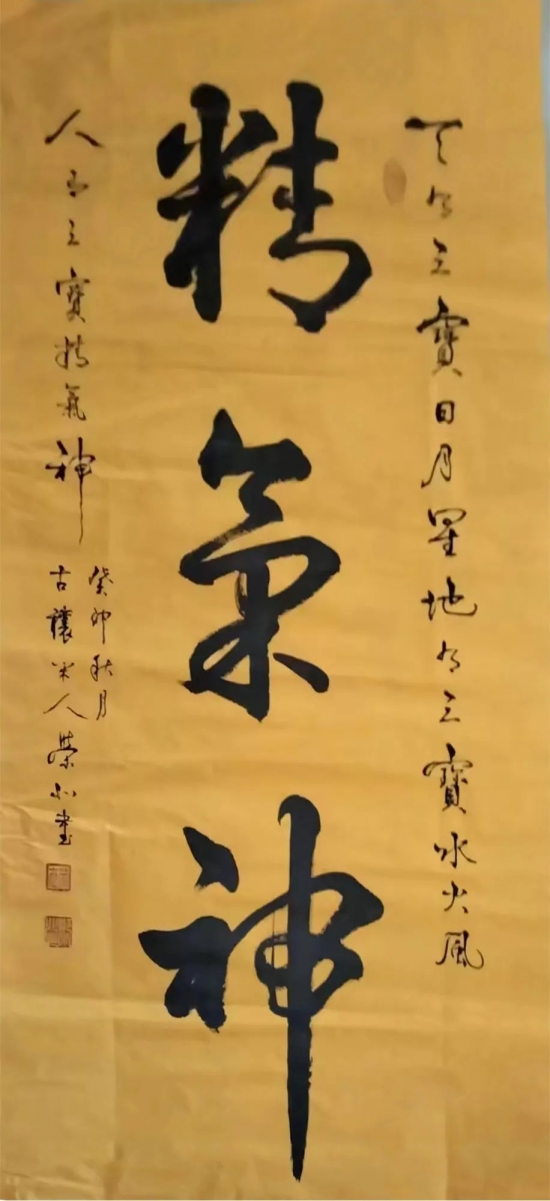 天有三寶日月星地有三寶水火風
精氣神
人有三寶精氣神
癸卯秋月
古穰 人榮 書